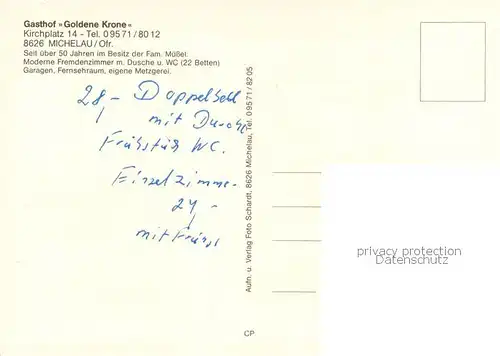 Gasthof »Goldene Krone«
Kirchplatz 14 - Tel. 0 95 71 / 80 12
8626 MICHELAU/Ofr.
Seit über 50 Jahren im Besitz der Fam. Müßel.
Moderne Fremdenzimmer m. Dusche u. WC (22 Betten)
Garagen, Fernsehraum, eigene Metzgerei.
28,- Doppelbett
mit Dusche
Frühstück WC.
Einzelzimmer
24,-
mit Frühst
Aufn. u. Verlag Foto Schardt, 8626 Michelau, Tel. 0 95 71 / 82 05
privacy protection
Datenschutz
CP